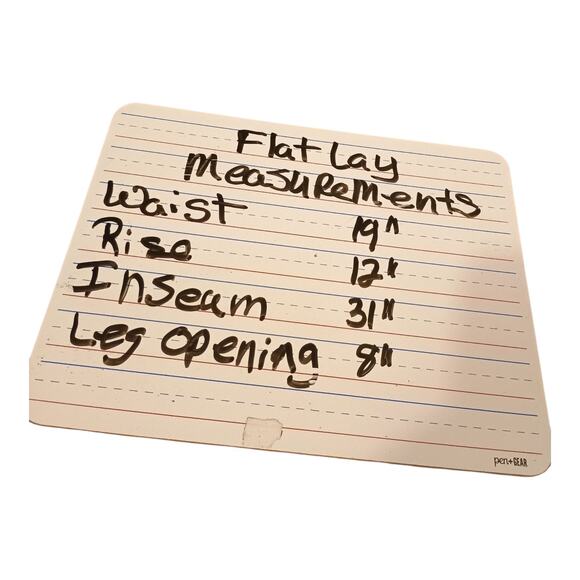 Flat Lay
Measurements
Waist 19"
Rise 12"
Inseam 31"
Leg Opening 8"
pen+GEAR